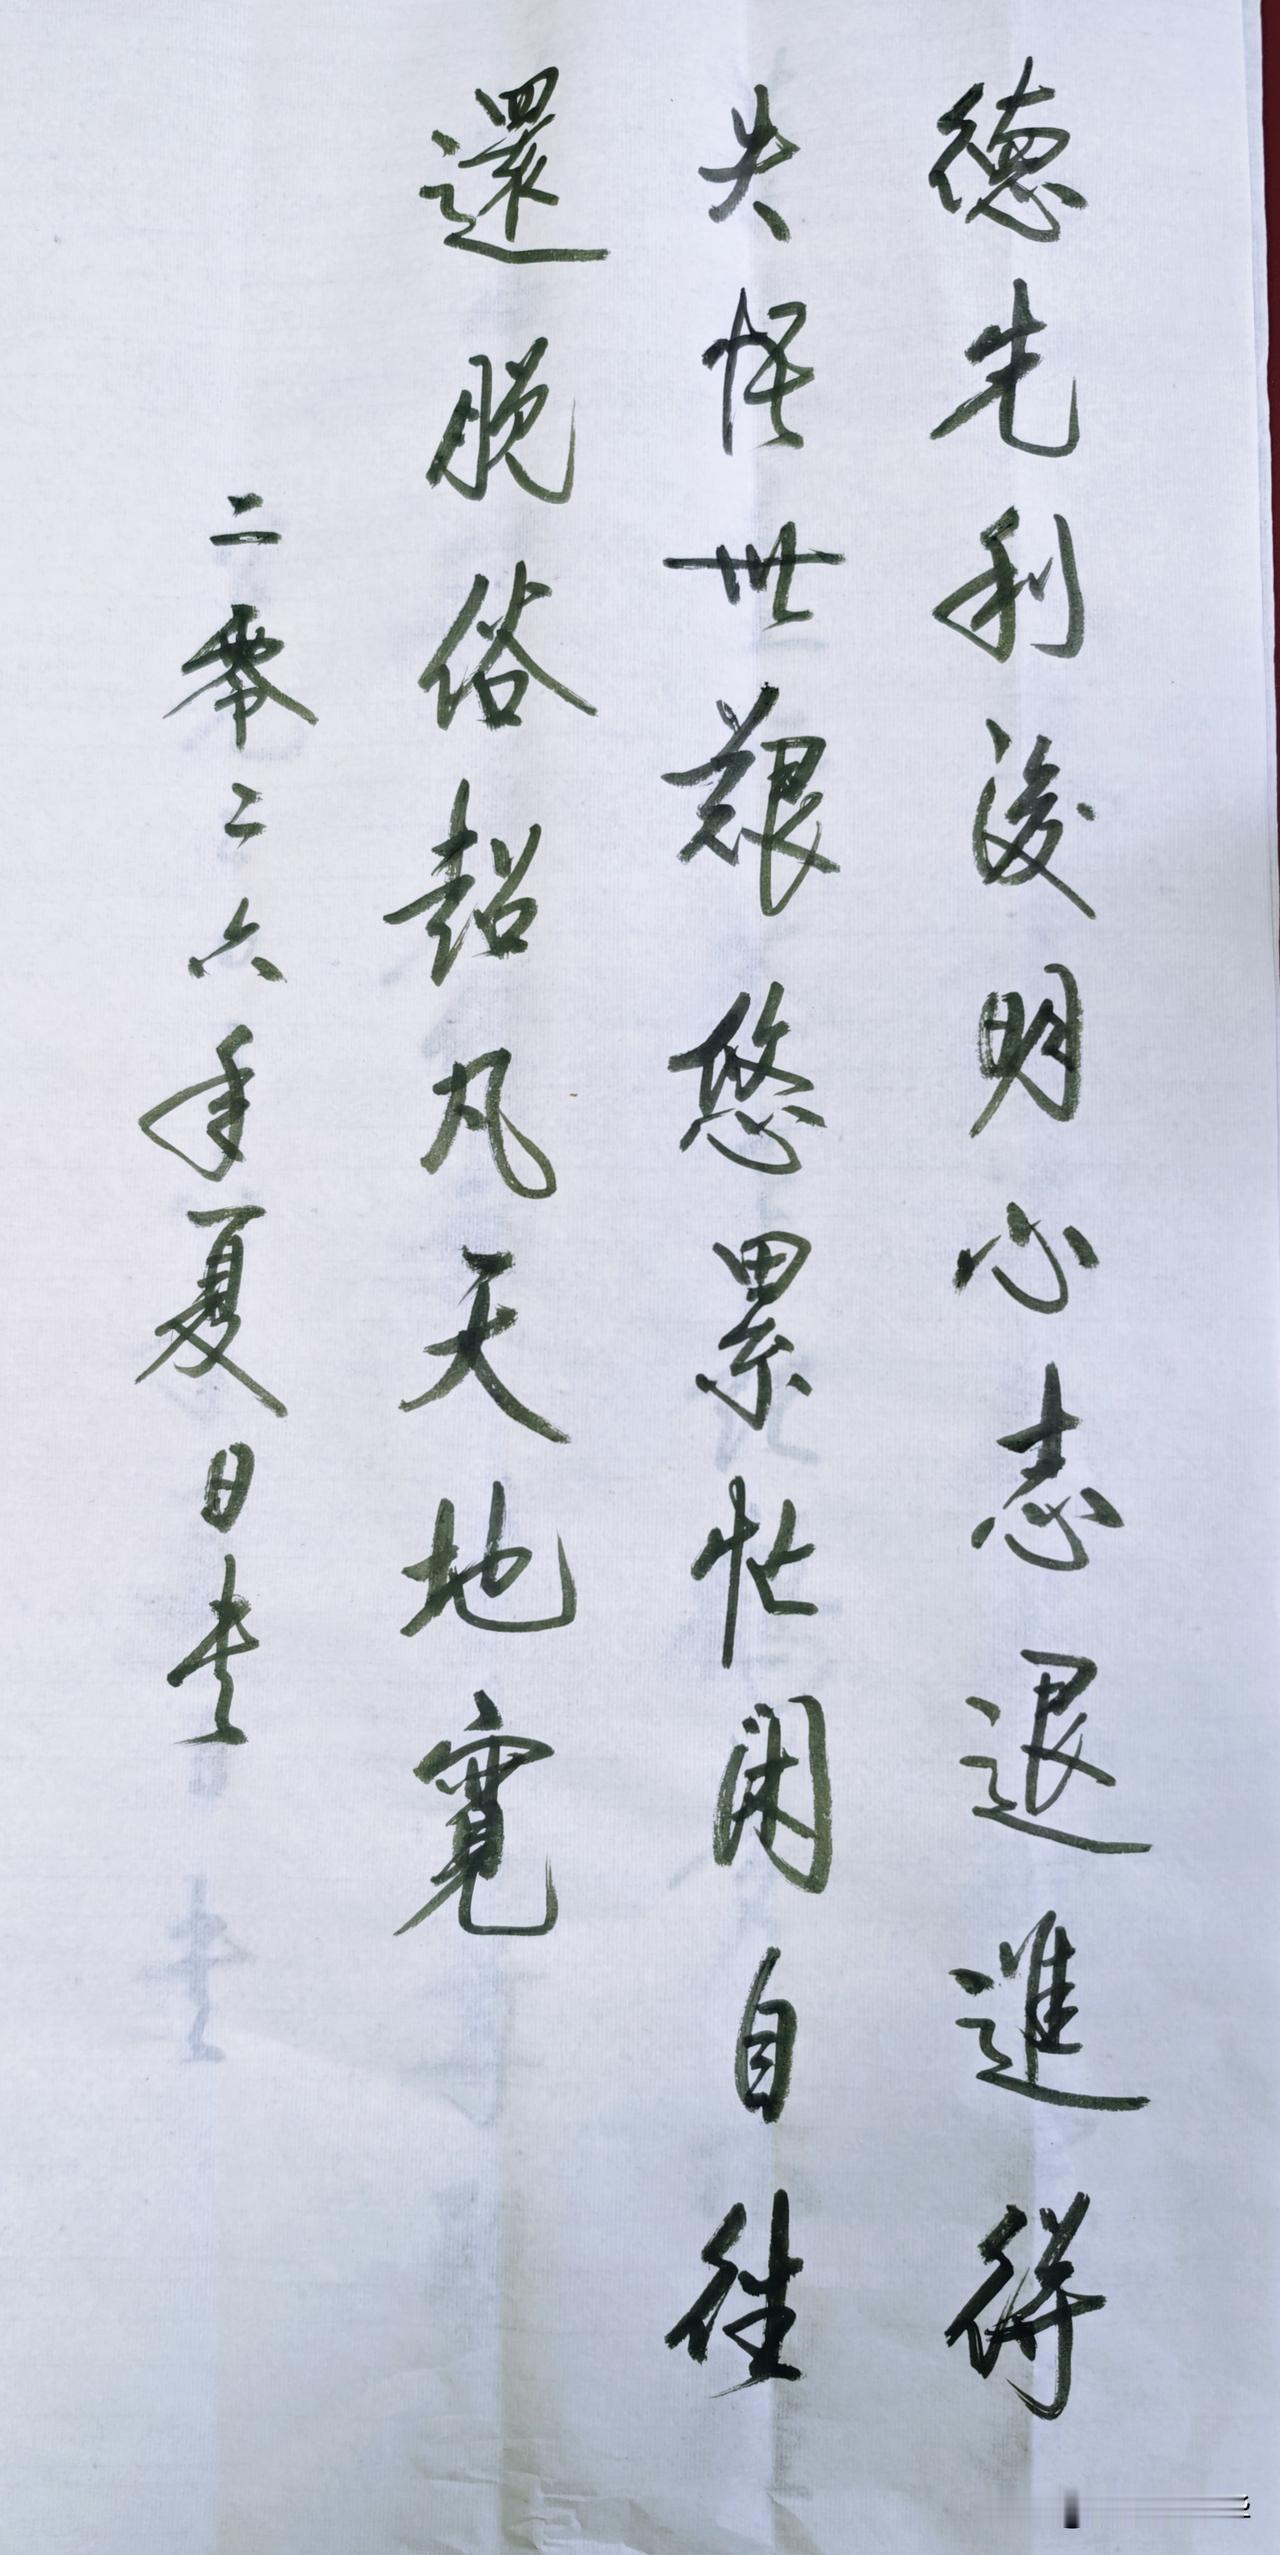 德先利後明心志退進得
失悟世艱悠累忙閑自往
還脱俗超凡天地寬
二零二六年夏日书